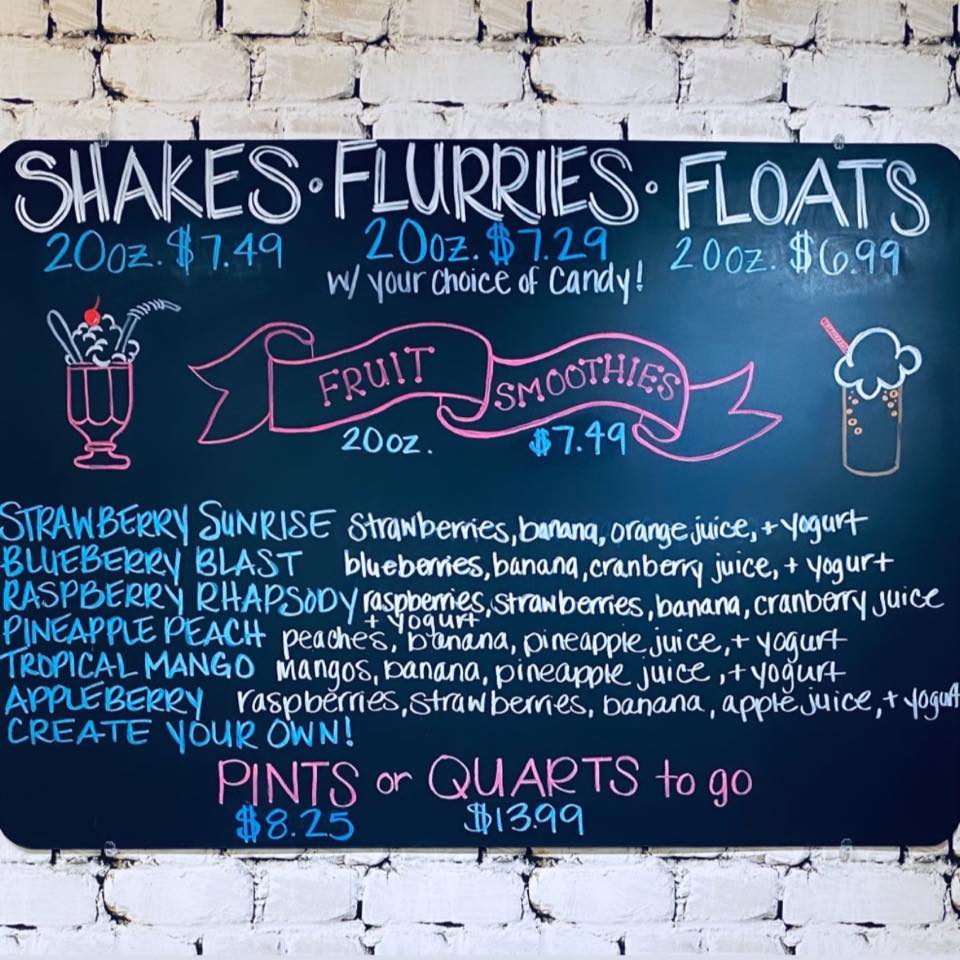 SHAKES • FLURRIES • FLOATS
20oz. $7.49 20oz. $7.29 20oz. $6.99
w/ your choice of candy!
FRUIT SMOOTHIES
20oz. $7.49
STRAWBERRY SUNRISE strawberries, banana, orange juice, + yogurt
BLUEBERRY BLAST blueberries, banana, cranberry juice, + yogurt
RASPBERRY RHAPSODY raspberries, strawberries, banana, cranberry juice
+ yogurt
PINEAPPLE PEACH peaches, banana, pineapple juice, + yogurt
TROPICAL MANGO mangos, banana, pineapple juice, + yogurt
APPLEBERRY raspberries, strawberries, banana, apple juice, + yogurt
CREATE YOUR OWN!
PINTS or QUARTS to go
$8.25 $13.99